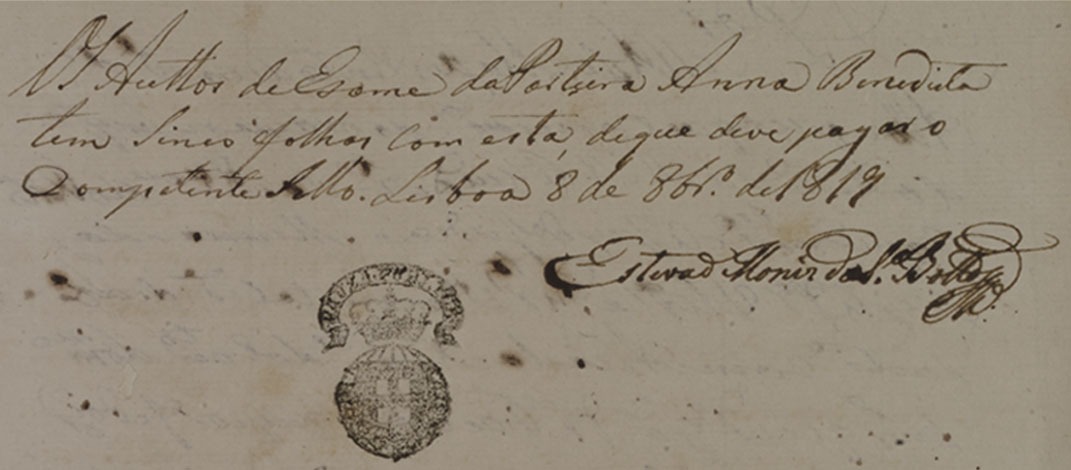 Os Auttos de Exame da Parteira Anna Benedicta
tem Sinco folhas com esta, de que deve pagar o
Competente Sello. Lisboa 8 de 8br.o de 1819
Estevaõ Moniz da S.a Botto